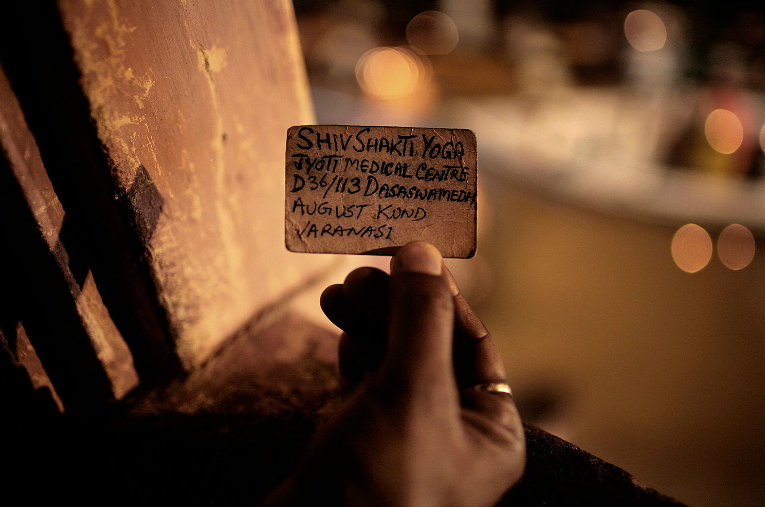 SHIV SHAKTI YOGA
JYOTI MEDICAL CENTRE
D36/113 DASASWAMEDH
AUGUST KUND
VARANASI